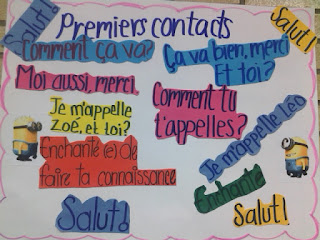 Salut!
Premiers contacts
Salut!
Comment ça va?
Ça va bien, merci
Et toi?
Moi aussi, merci.
Comment tu
t'appelles?
Je m'appelle
Zoé, et toi?
Je m'appelle Léo
Enchanté(e) de
faire ta connaissance
Enchanté
Salut!
Salut!